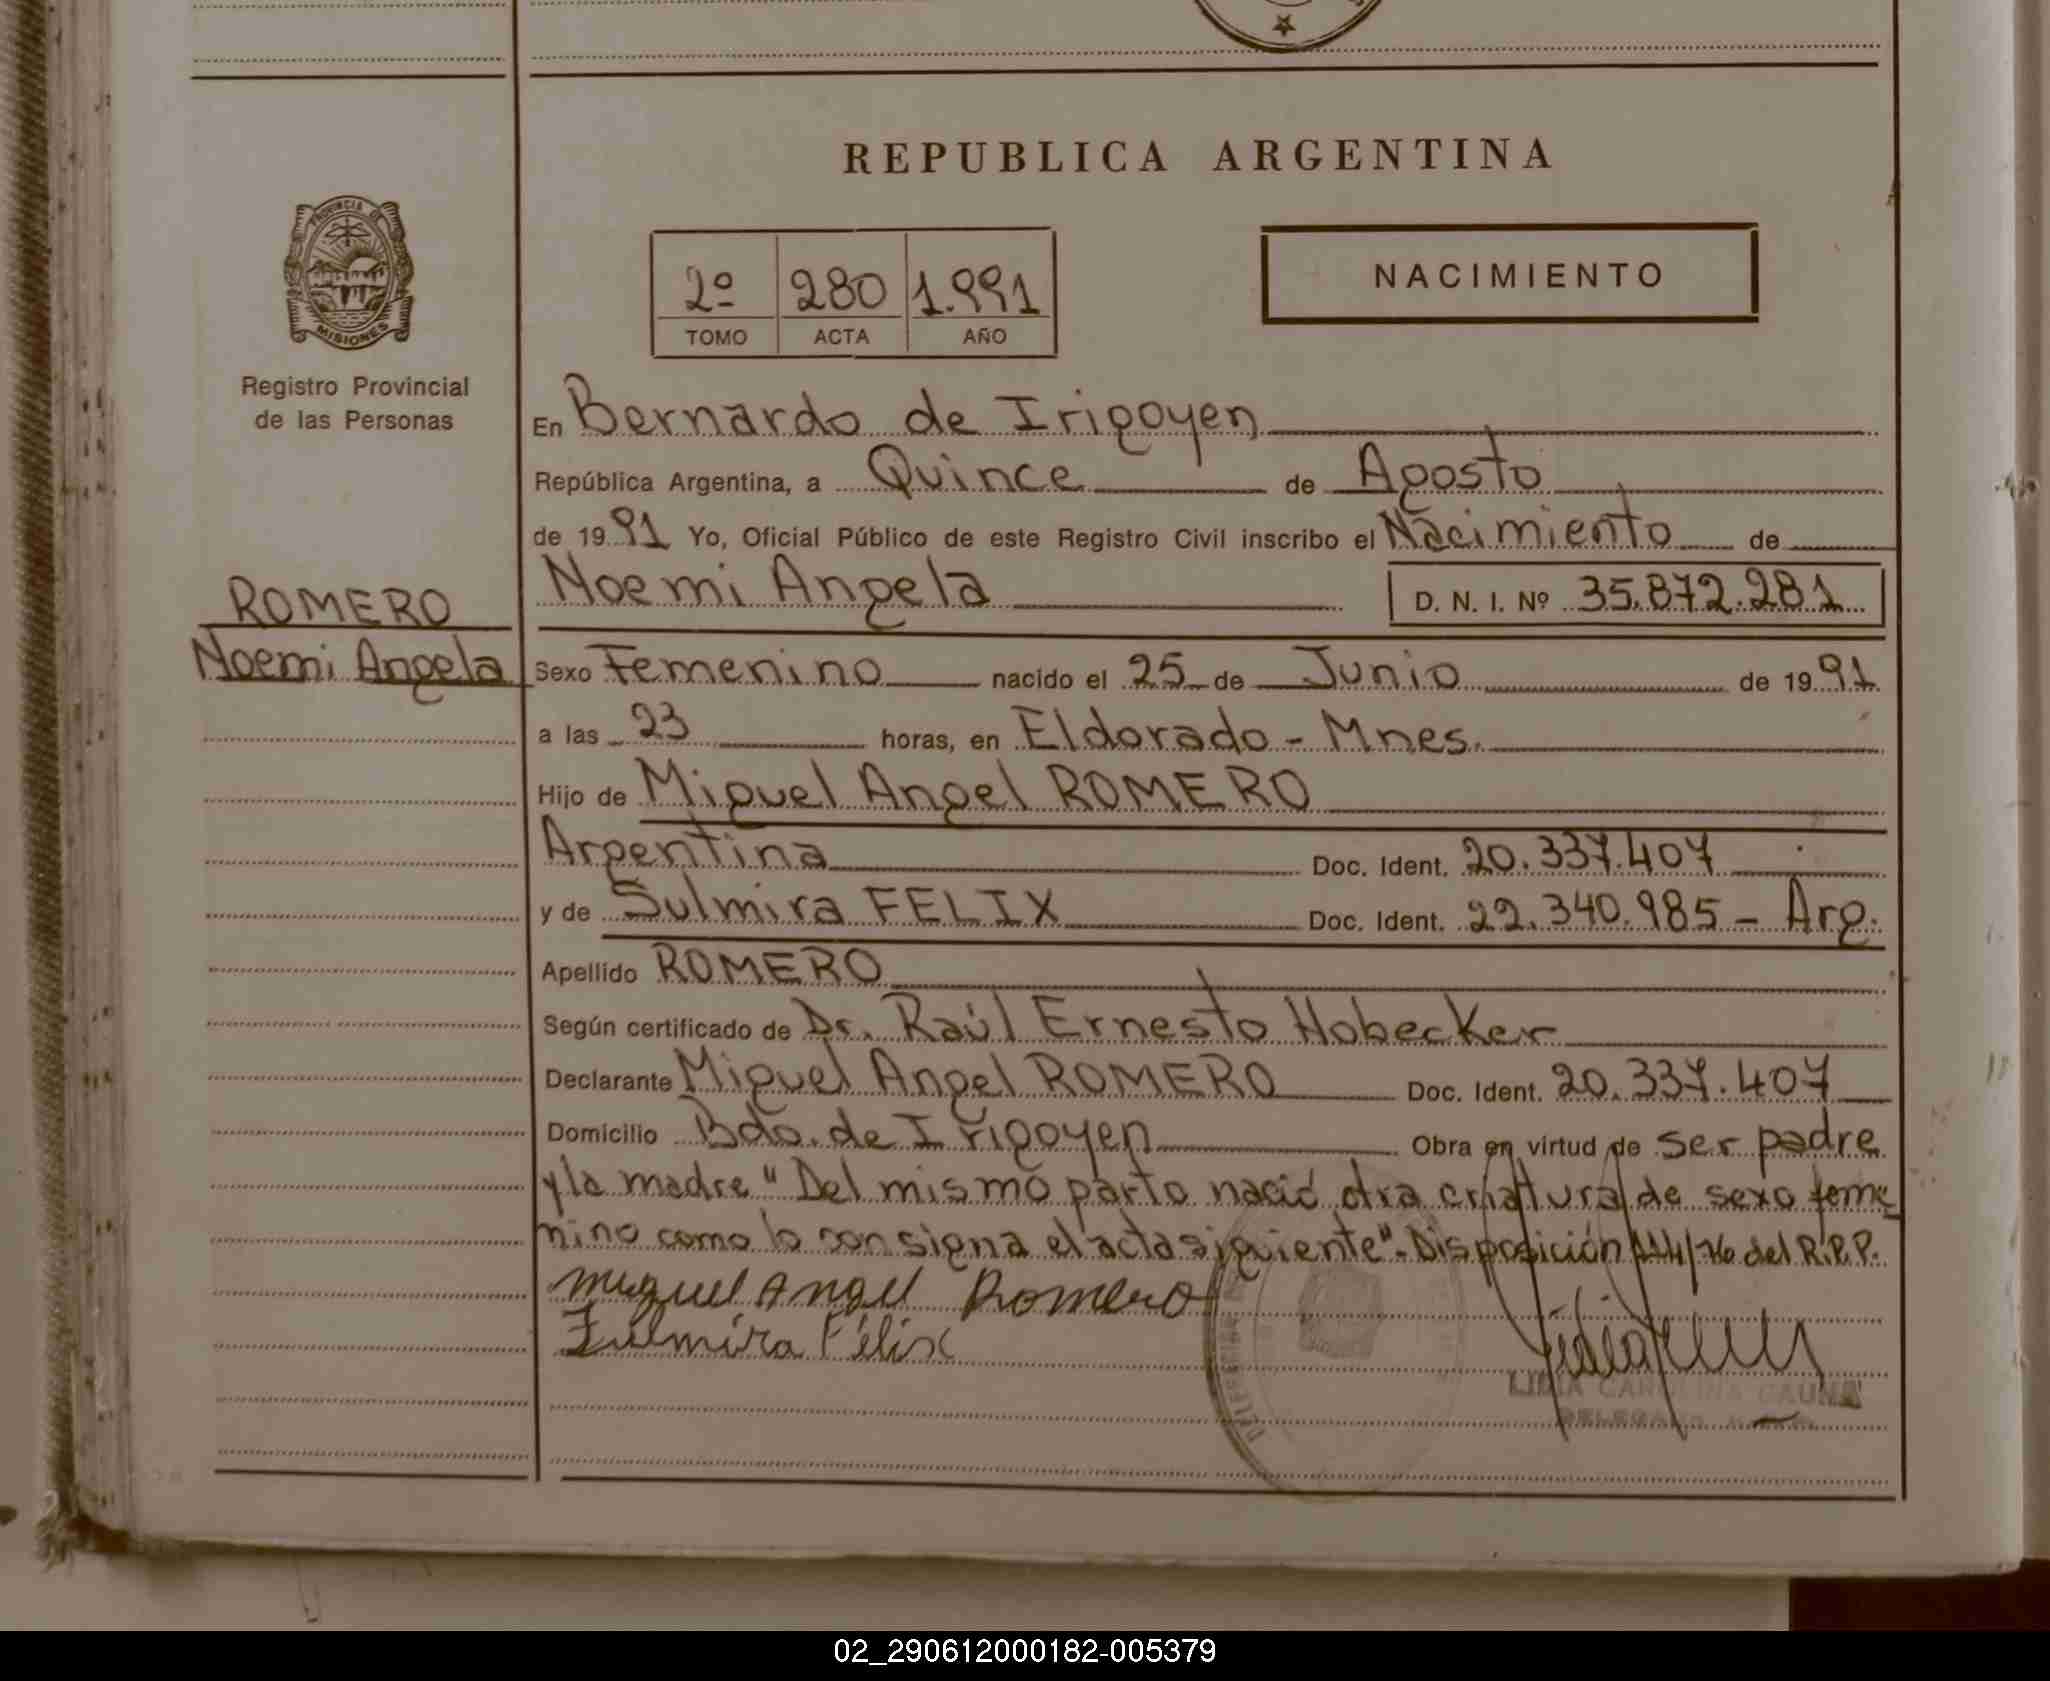 REPUBLICA ARGENTINA
PROVINCIA DE
MISIONES
Registro Provincial
de las Personas
2º 280 1.991
TOMO ACTA AÑO
NACIMIENTO
En Bernardo de Irigoyen
República Argentina, a Quince de Agosto
de 1991 Yo, Oficial Público de este Registro Civil inscribo el Nacimiento de
Noemi Angela D. N. I. Nº 35.872.281
ROMERO
Noemi Angela
Sexo Femenino nacido el 25 de Junio de 1991
a las 23 horas, en Eldorado - Mnes.
Hijo de Miguel Angel ROMERO
Argentina Doc. Ident. 20.337.407
y de Sulmira FELIX Doc. Ident. 22.340.985 - Arg.
Apellido ROMERO
Según certificado de Dr. Raúl Ernesto Hobecker
Declarante Miguel Angel ROMERO Doc. Ident. 20.337.407
Domicilio Bdo. de Irigoyen Obra en virtud de ser padre
y la madre "Del mismo parto nació otra criatura de sexo feme
nino como lo consigna el acta siguiente". Disposición 114/76 del R.P.P.
Miguel Angel Romero
Zulmira Félix
LIDIA CAROLINA GAUNA
02_290612000182-005379